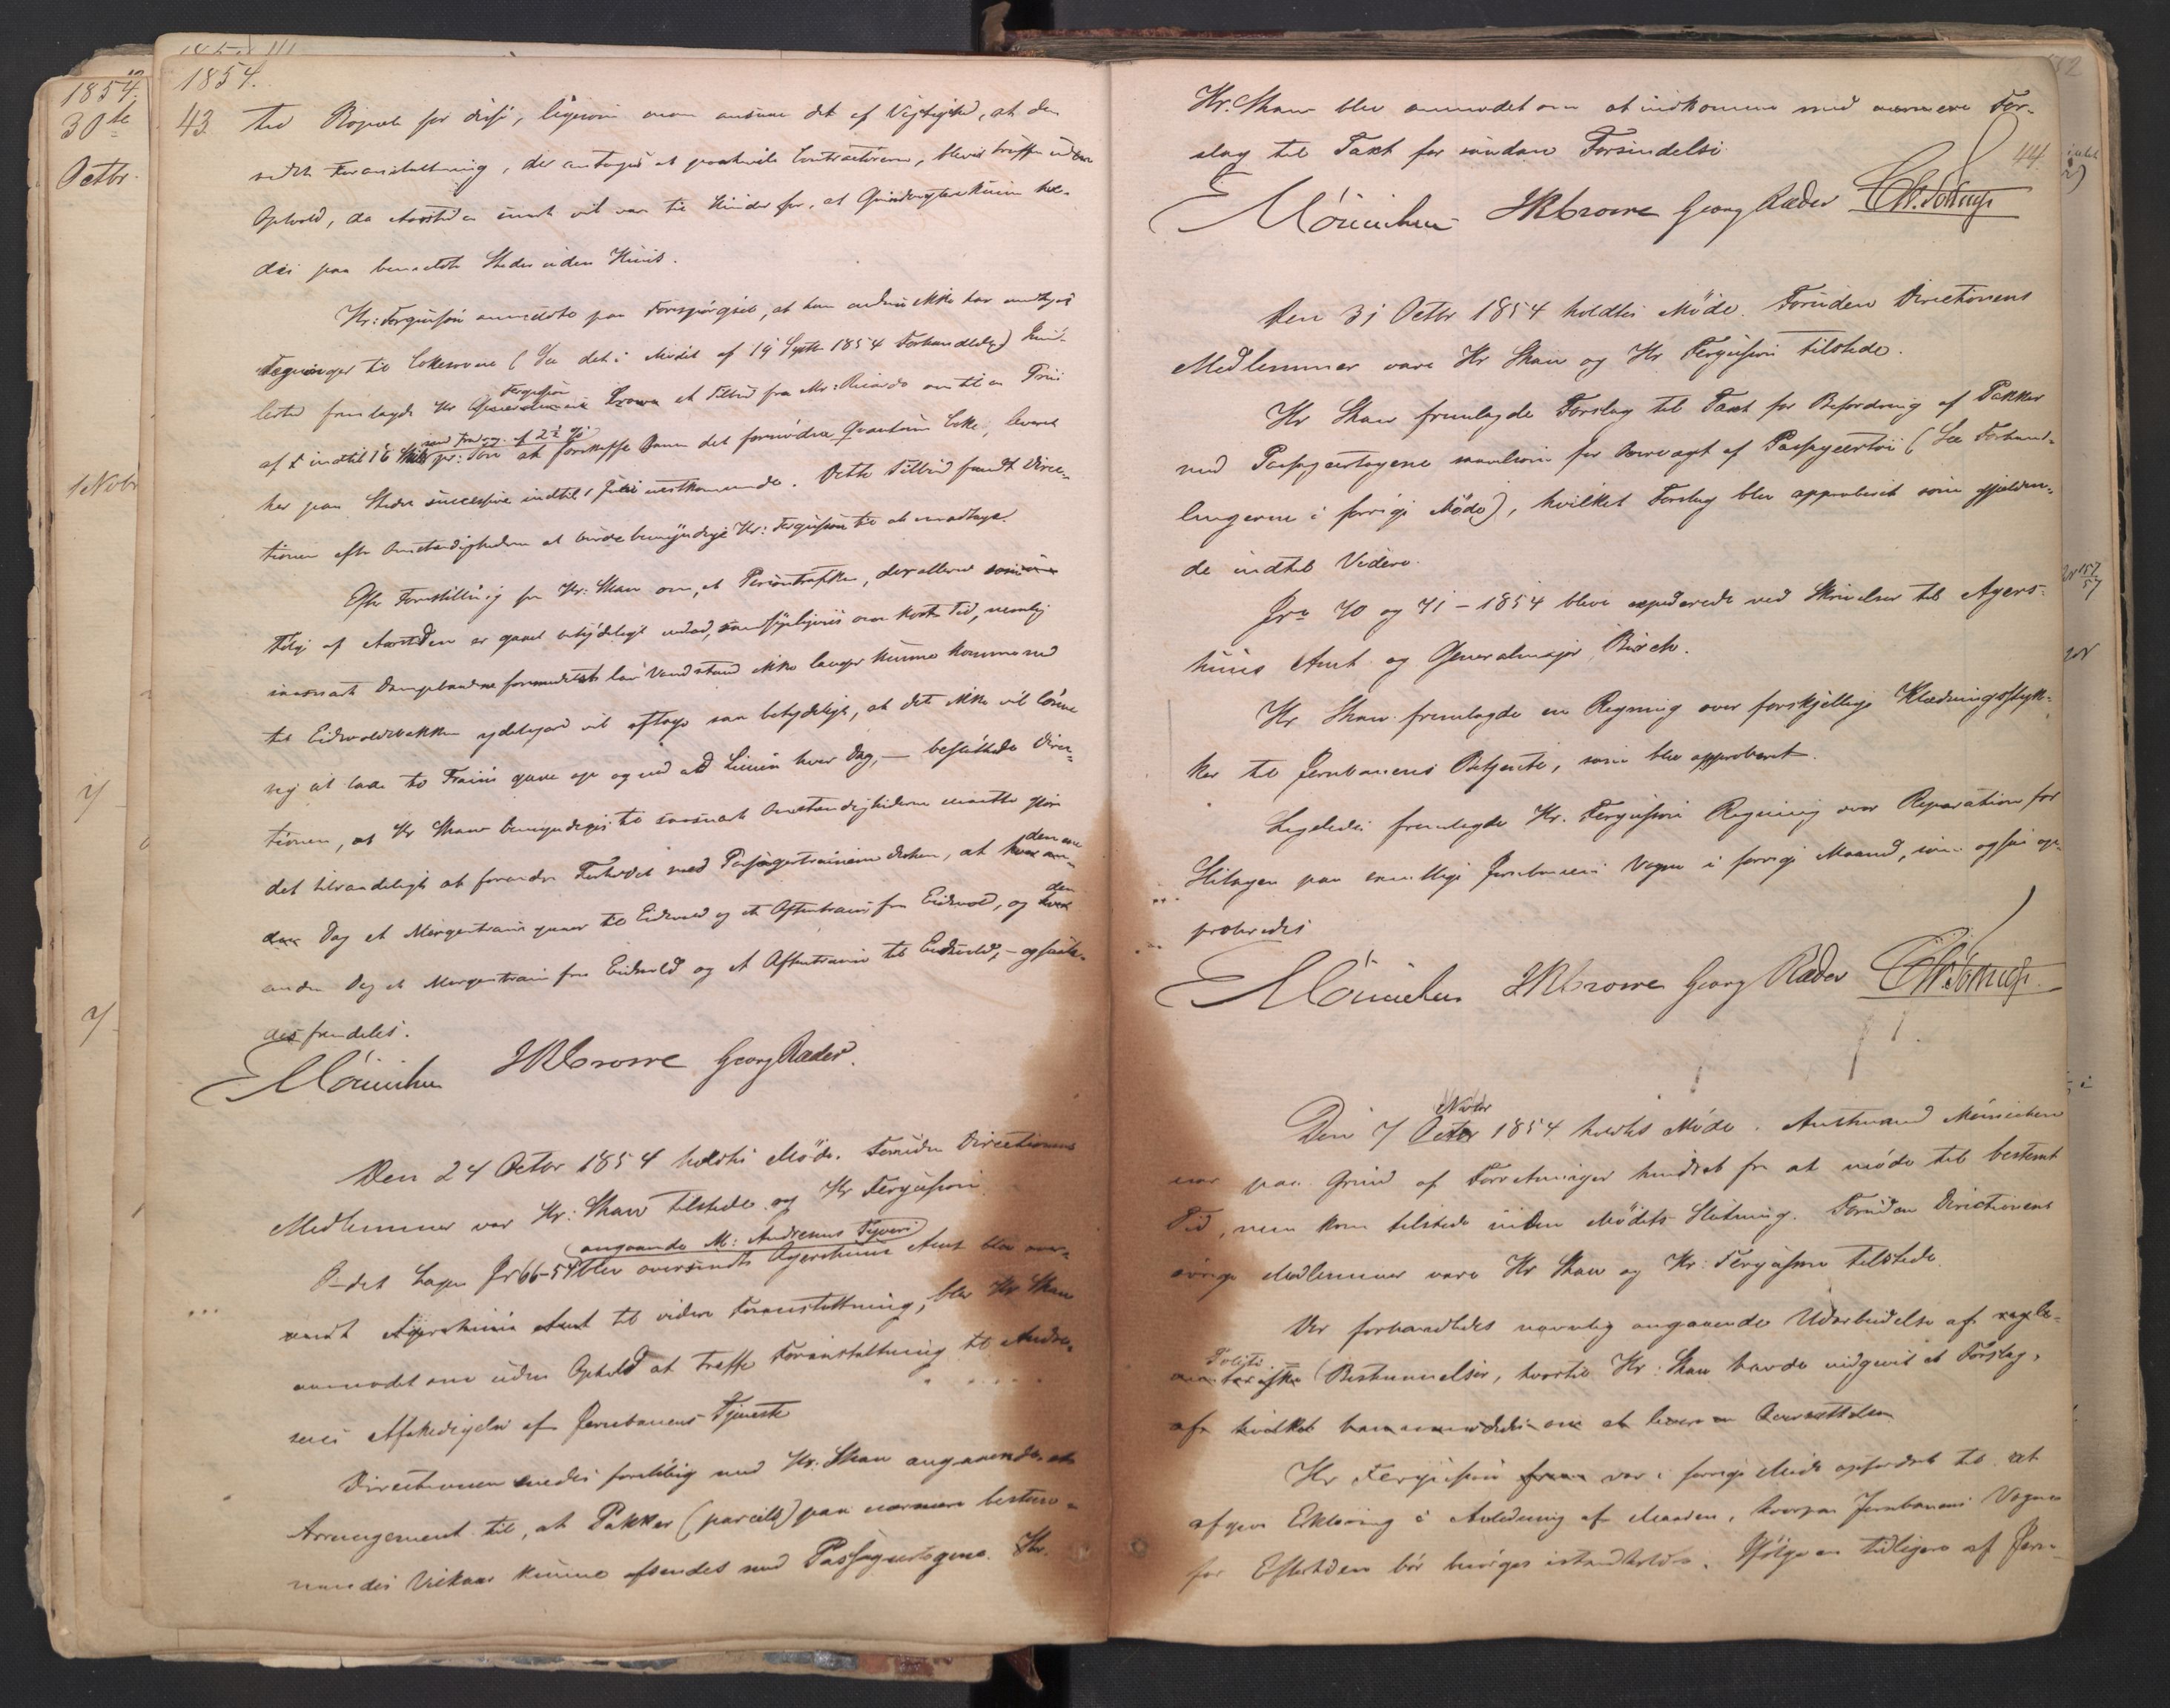 1854.
30te
Octbr.
1 Novbr
1854.
43.
ted Bopæl for disse, ligesom man ansaae det af Vigtighed, at den
Foranstaltning, der antages at paahvile Contracteurerne, bliver truffen uden
Ophold, da Aarstiden snart vil være til Hinder for, at
paa bemeldte Steder inden Vinter.
Hr: Fergusson anmeldte paa Forespørgsel, at han endnu ikke har modtaget
Tegninger til Cokesovne (See det i Mødet af 19 Septbr 1854 Forhandlede) Imid-
lertid fremlagde Hr Fergusson et Tilbud fra Mr: Ricardo om til en Priis
af £ indtil 16 Sh pr: Ton med Fradrag af 2½ % at forskaffe Banen det fornødne Qvantum Coke, leveret
her paa Stedet successive indtil 1 Juli næstkommende. Dette Tilbud fandt Direc-
tionen efter Omstændighederne at burde bemyndige Hr: Fergusson til at modtage.
Efter Forestilling fra Hr: Shaw om, at Persontrafiken, der allerede som en
Følge af Aarstiden er gaaet betydeligt nedad, sandsynligviis om kort Tid, nemlig
saasnart Dampbaadene formedelst lav Vandstand ikke længer kunne komme ned
til Eidsvoldsbakken yderligere vil aftage saa betydeligt, at det ikke vil lønne
sig at lade to Trains gaae op og ned ad Linien hver Dag, — besluttede Direc-
tionen, at Hr Shaw bemyndiges til saasnart Omstændighederne maatte gjøre
det tilraadeligt at forandre Forholdet med Passagertrainene derhen, at den ene
Dag et Morgentrain gaaer til Eidsvold og et Aftentrain fra Eidsvold, og den
anden Dag et Morgentrain fra Eidsvold og et Aftentrain til Eidsvold, — og saale-
des fremdeles.
E Mönnichen JRCrowe Georg Ræder.
Den 24 Octbr 1854 holdtes Møde. Foruden Directionens
Medlemmer var Hr: Shaw tilstede og Hr Fergusson
angaaende M: Andresens Tyveri
I det Sagen Jr 66-54 blev oversendt Agershuus Amt blev over-
sendt Agershuus Amt til videre Foranstaltning, blev Hr Shaw
anmodet om uden Ophold at træffe Foranstaltning til Andre-
sens Afskedigelse af Jernbanens Tjeneste
Directionen enedes foreløbig med Hr. Shaw angaaende et
Arrangement til, at Pakker (parcels) paa nærmere bestem-
mendes Vilkaar kunne afsendes med Passagertogene. Hr.
Hr. Shaw blev anmodet om at indkomme med nærmere For-
slag til Taxt for saadan Forsendelse
44.
E Mönnichen JRCrowe Georg Ræder
Den 31 Octbr 1854 holdtes Møde. Foruden Directionens
Medlemmer vare Hr Shaw og Hr Fergusson tilstede.
Hr Shaw fremlagde Forslag til Taxt for Befordring af Pakker
med Passagertogene saavelsom for Overvægt af Passagertøi (See Forhand-
lingerne i forrige Møde), hvilket Forslag blev approberet som gjælden-
de indtil Videre.
Jr: 70 og 71 – 1854 bleve expederede ved Skrivelser til Agers-
huus Amt og Generalmajor Birch.
Hr Shaw fremlagde en Regning over forskjellige Klædningsstyk-
ker til Jernbanens Betjente, som blev approberet.
Ligeledes fremlagde Hr. Fergusson Regning over Reparation for
Slitagen paa samtlige Jernbanens Vogne i forrige Maaned, som ogsaa ap-
proberedes
E Mönnichen JRCrowe Georg Ræder
Den 7 Novbr 1854 holdtes Møde. Amtmand Mönnichen
var paa Grund af Forretninger hindret fra at møde til bestemt
Tid, men kom tilstede inden Mødets Slutning. Foruden Directionens
øvrige Medlemmer vare Hr Shaw og Hr: Fergusson tilstede.
Der forhandledes navnlig angaaende Udarbeidelse af regle-
Politi
mentariske Bestemmelser, hvortil Hr: Shaw havde indgivet et Forslag,
af hvilket han anmodedes om at levere en Oversættelse
Hr Fergusson var i forrige Møde opfordret til at
afgive Erklæring i Anledning af Maaden, hvorpaa Jernbanens Vogne
for Eftertiden bør besørges istandholdte. Ifølge en tidligere af Jern-